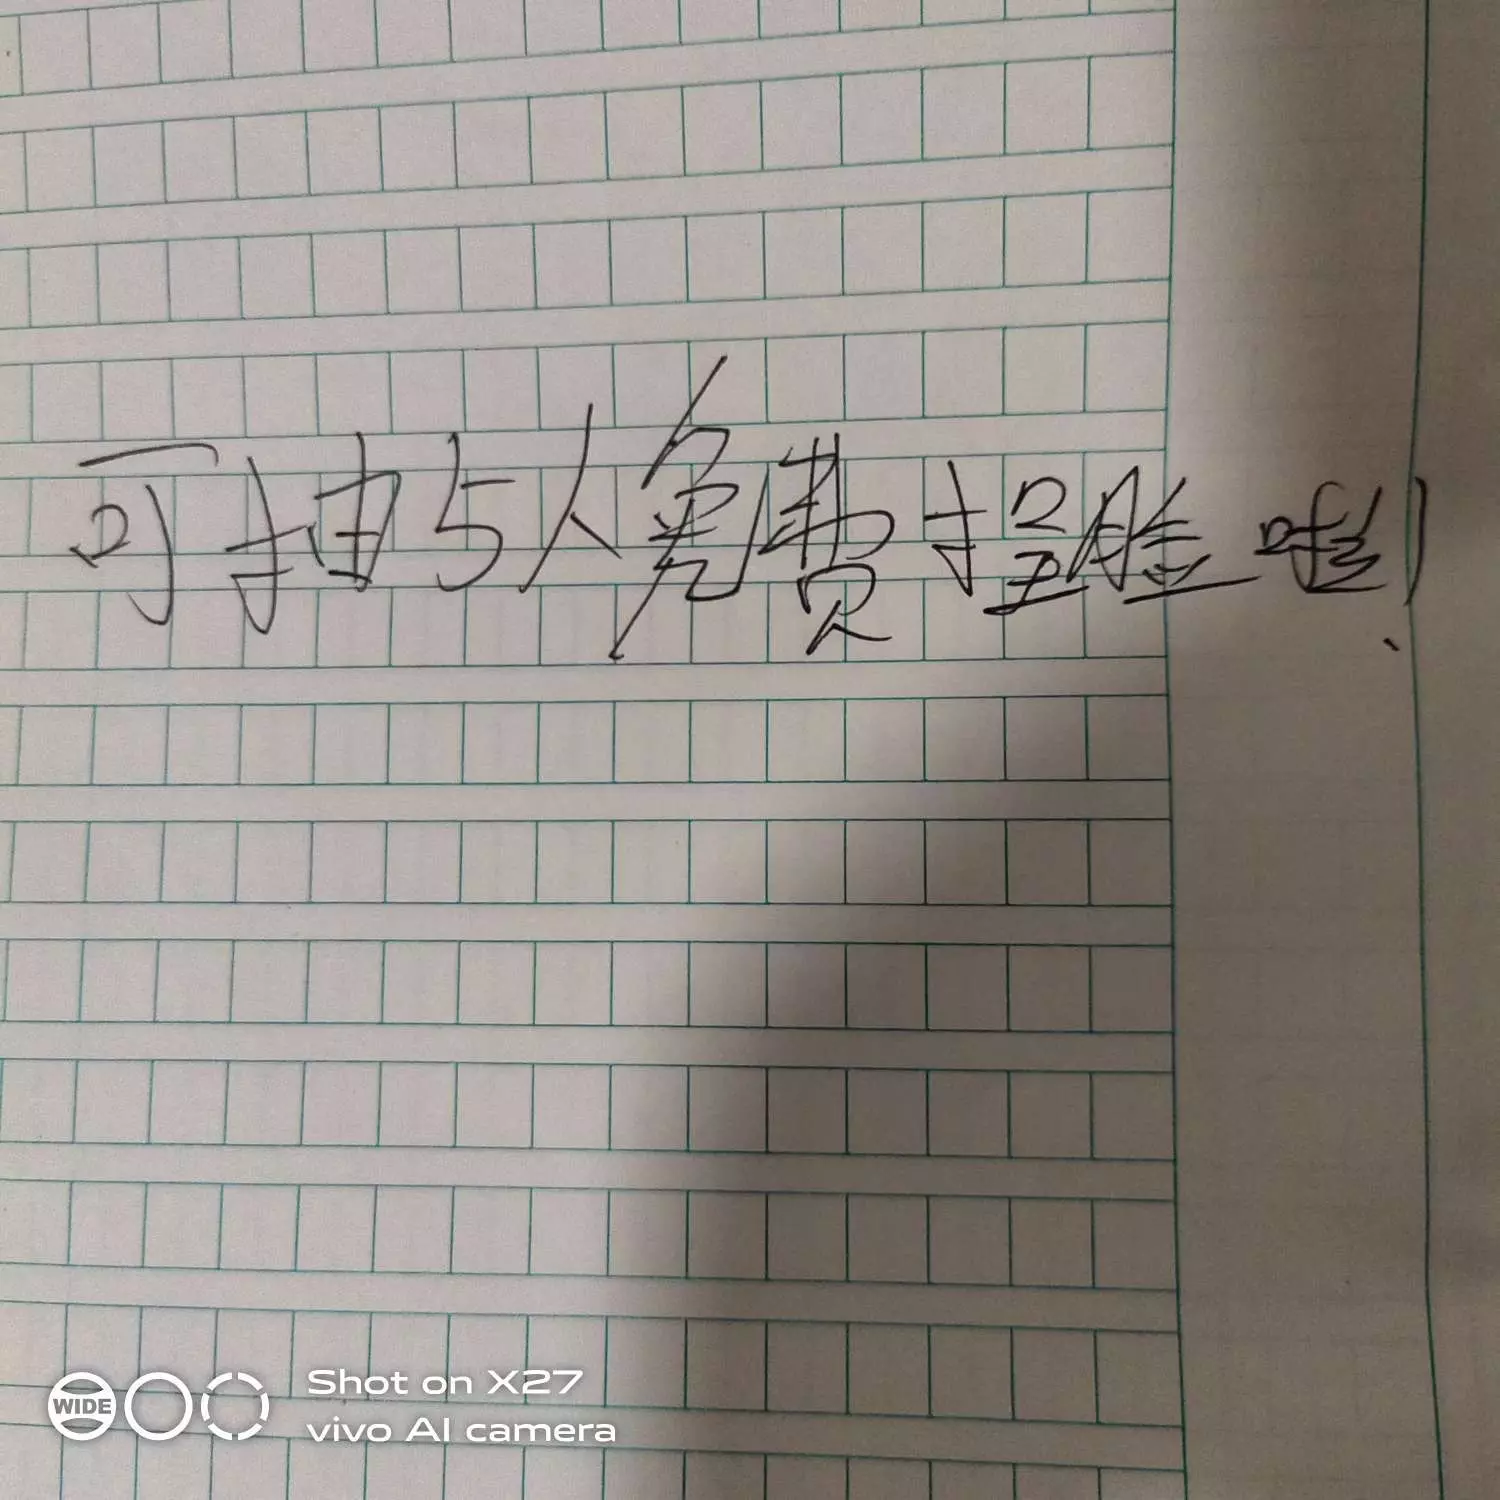 可抽5人免费捏脸哦!
WIDE
Shot on X27
vivo AI camera